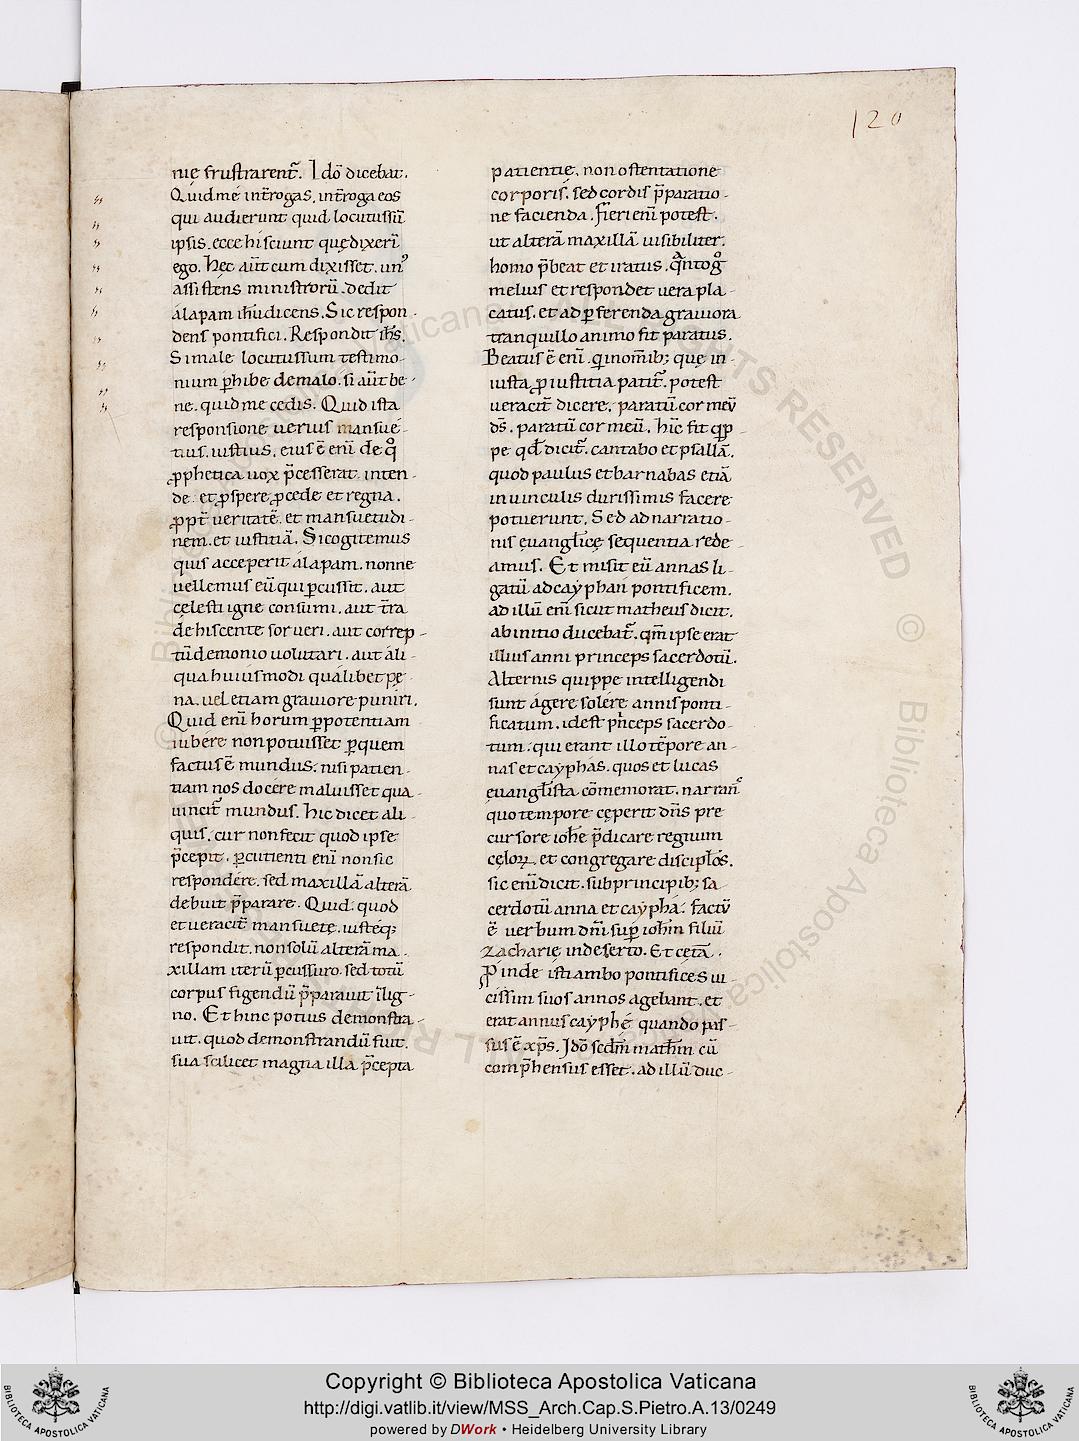 120
nię frustrarent᷑. Idõ dicebat.
Quid me int̃rogas. int̃roga eos
qui audierunt quid locutussũ
ipsis. ecce hi sciunt quę dixerĩ
ego. Hec aũt cum dixisset. un᾽
assistens ministrorũ. dedit
alapam ihũ dicens. Sic respon-
dens pontifici. Respondit ihs̃.
Si male locutus sum testimo-
nium ꝑhibe de malo. si aũt be-
ne. quid me cedis. Quid ista
responsione uerius mansue-
tius. iustius. eius ẽ enĩ de qͦ
ꝓphetica uox p̃cesserat. inten-
de. et ꝓspere ꝓcede et regna.
ꝓpt̃ ueritatẽ. et mansuetudi-
nem. et iustitiã. Si cogitemus
quis acceperit alapam. nonne
uellemus eũ qui ꝑcussit. aut
cęlesti igne consumi. aut t̃ra
dehiscente sorueri. aut correp-
tũ demonio uolutari. aut ali-
qua huiusmodi qualibet pę-
na. uel etiam grauiore puniri.
Quid enĩ horum ꝑ potentiam
iubere non potuisset ꝑ quem
factus ẽ mundus. nisi patien-
tiam nos docere maluisset qua
uincit᷑ mundus. Hic dicet ali-
quis. cur non fecit quod ipse
p̃cepit. ꝑcutienti enĩ non sic
respondere. sed maxillã alterã
debuit p̃parare. Quid. quod
et ueracit̃ mansuete. iusteq;
respondit. non solũ alterã ma-
xillam iterũ ꝑcussuro. sed totũ
corpus figendũ p̃parauit ĩ lig-
no. Et hinc potius demonstra-
uit. quod demonstrandũ fuit.
sua scilicet magna illa p̃cepta
patientię. non ostentatione
corporis. sed cordis p̃paratio-
ne facienda. fieri enĩ potest.
ut alterã maxillã uisibiliter.
homo p̃beat et iratus. Q̃ntogͦ
melius et respondet uera pla-
catus. et ad ꝑferenda grauiora
tranquillo animo fit paratus.
Beatus ẽ enĩ. qͥ in om̃ib; quę in-
iusta ꝓ iustitia patit᷑. potest
ueracit̃ dicere. paratũ cor meũ
ds̃. paratũ cor meũ. hic fit qꝓp-
pe qđ dicit᷑. cantabo et psallã.
quod paulus et barnabas etiã
in uinculis durissimis facere
potuerunt. Sed ad narratio-
nis euangl̃icę sequentia rede-
amus. Et misit eũ annas li-
gatũ ad cayphan pontificem.
ad illũ enĩ sicut matheus dicit.
ab initio ducebat᷑. qm̃ ipse erat
illius anni princeps sacerdotũ.
Alternis quippe intelligendi
sunt agere solere annis ponti-
ficatum. id est pͥnceps sacerdo-
tum. qui erant illo tẽpore an-
nas et cayphas. quos et lucas
euangl̃ista cõmemorat. narran᷒
quo tempore cęperit dñs pre
cursore ioh̃e p̃dicare regnum
cęloꝝ. et congregare discipl̃os.
sic enĩ dicit. sub principib; sa-
cerdotũ anna et caypha. factũ
ẽ uerbum dñi suꝑ ioh̃m filiũ
zacharię in deserto. Et cęt̃a.
Ꝓinde isti ambo pontifices ui-
cissim suos annos agebant. et
erat annus cayphę quando pas-
sus ẽ xp̃s. Idõ scd̃m math̃m cũ
comp̃hensus esset. ad illũ duc-
Copyright © Biblioteca Apostolica Vaticana
http://digi.vatlib.it/view/MSS_Arch.Cap.S.Pietro.A.13/0249
powered by DWork • Heidelberg University Library